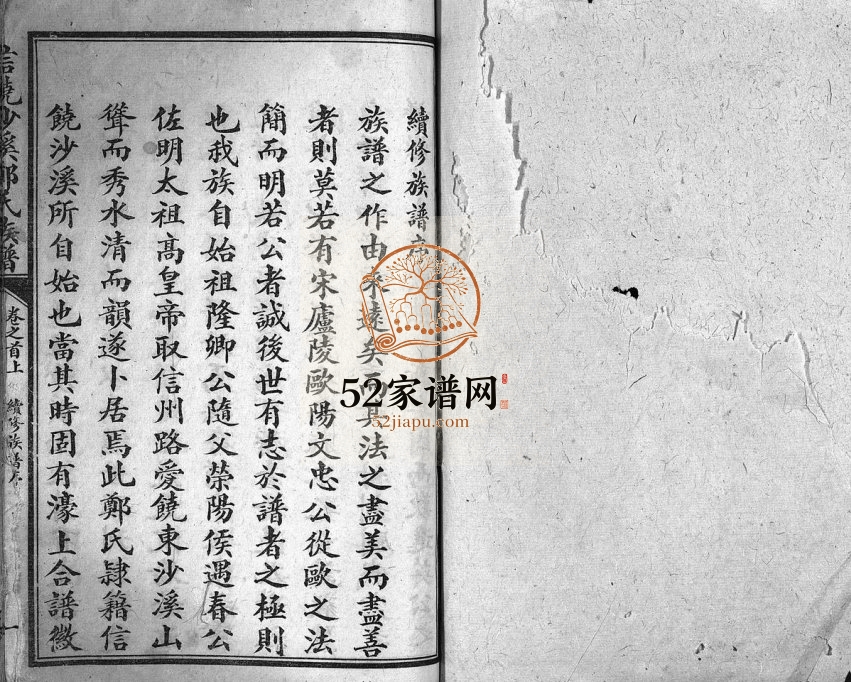 續修族譜序
族譜之作由來遠矣而其法之盡美而盡善
者則莫若有宋廬陵歐陽文忠公從歐之法
簡而明若公者誠後世有志於譜者之極則
也我族自始祖隆卿公隨父榮陽侯遇春公
佐明太祖高皇帝取信州路愛饒東沙溪山
聳而秀水清而韻遂卜居焉此鄭氏隸籍信
饒沙溪所自始也當其時固有濠上合譜徽
信饒沙溪鄭氏族譜
卷之首上
續修族譜序
一
52家谱网
52jiapu.com